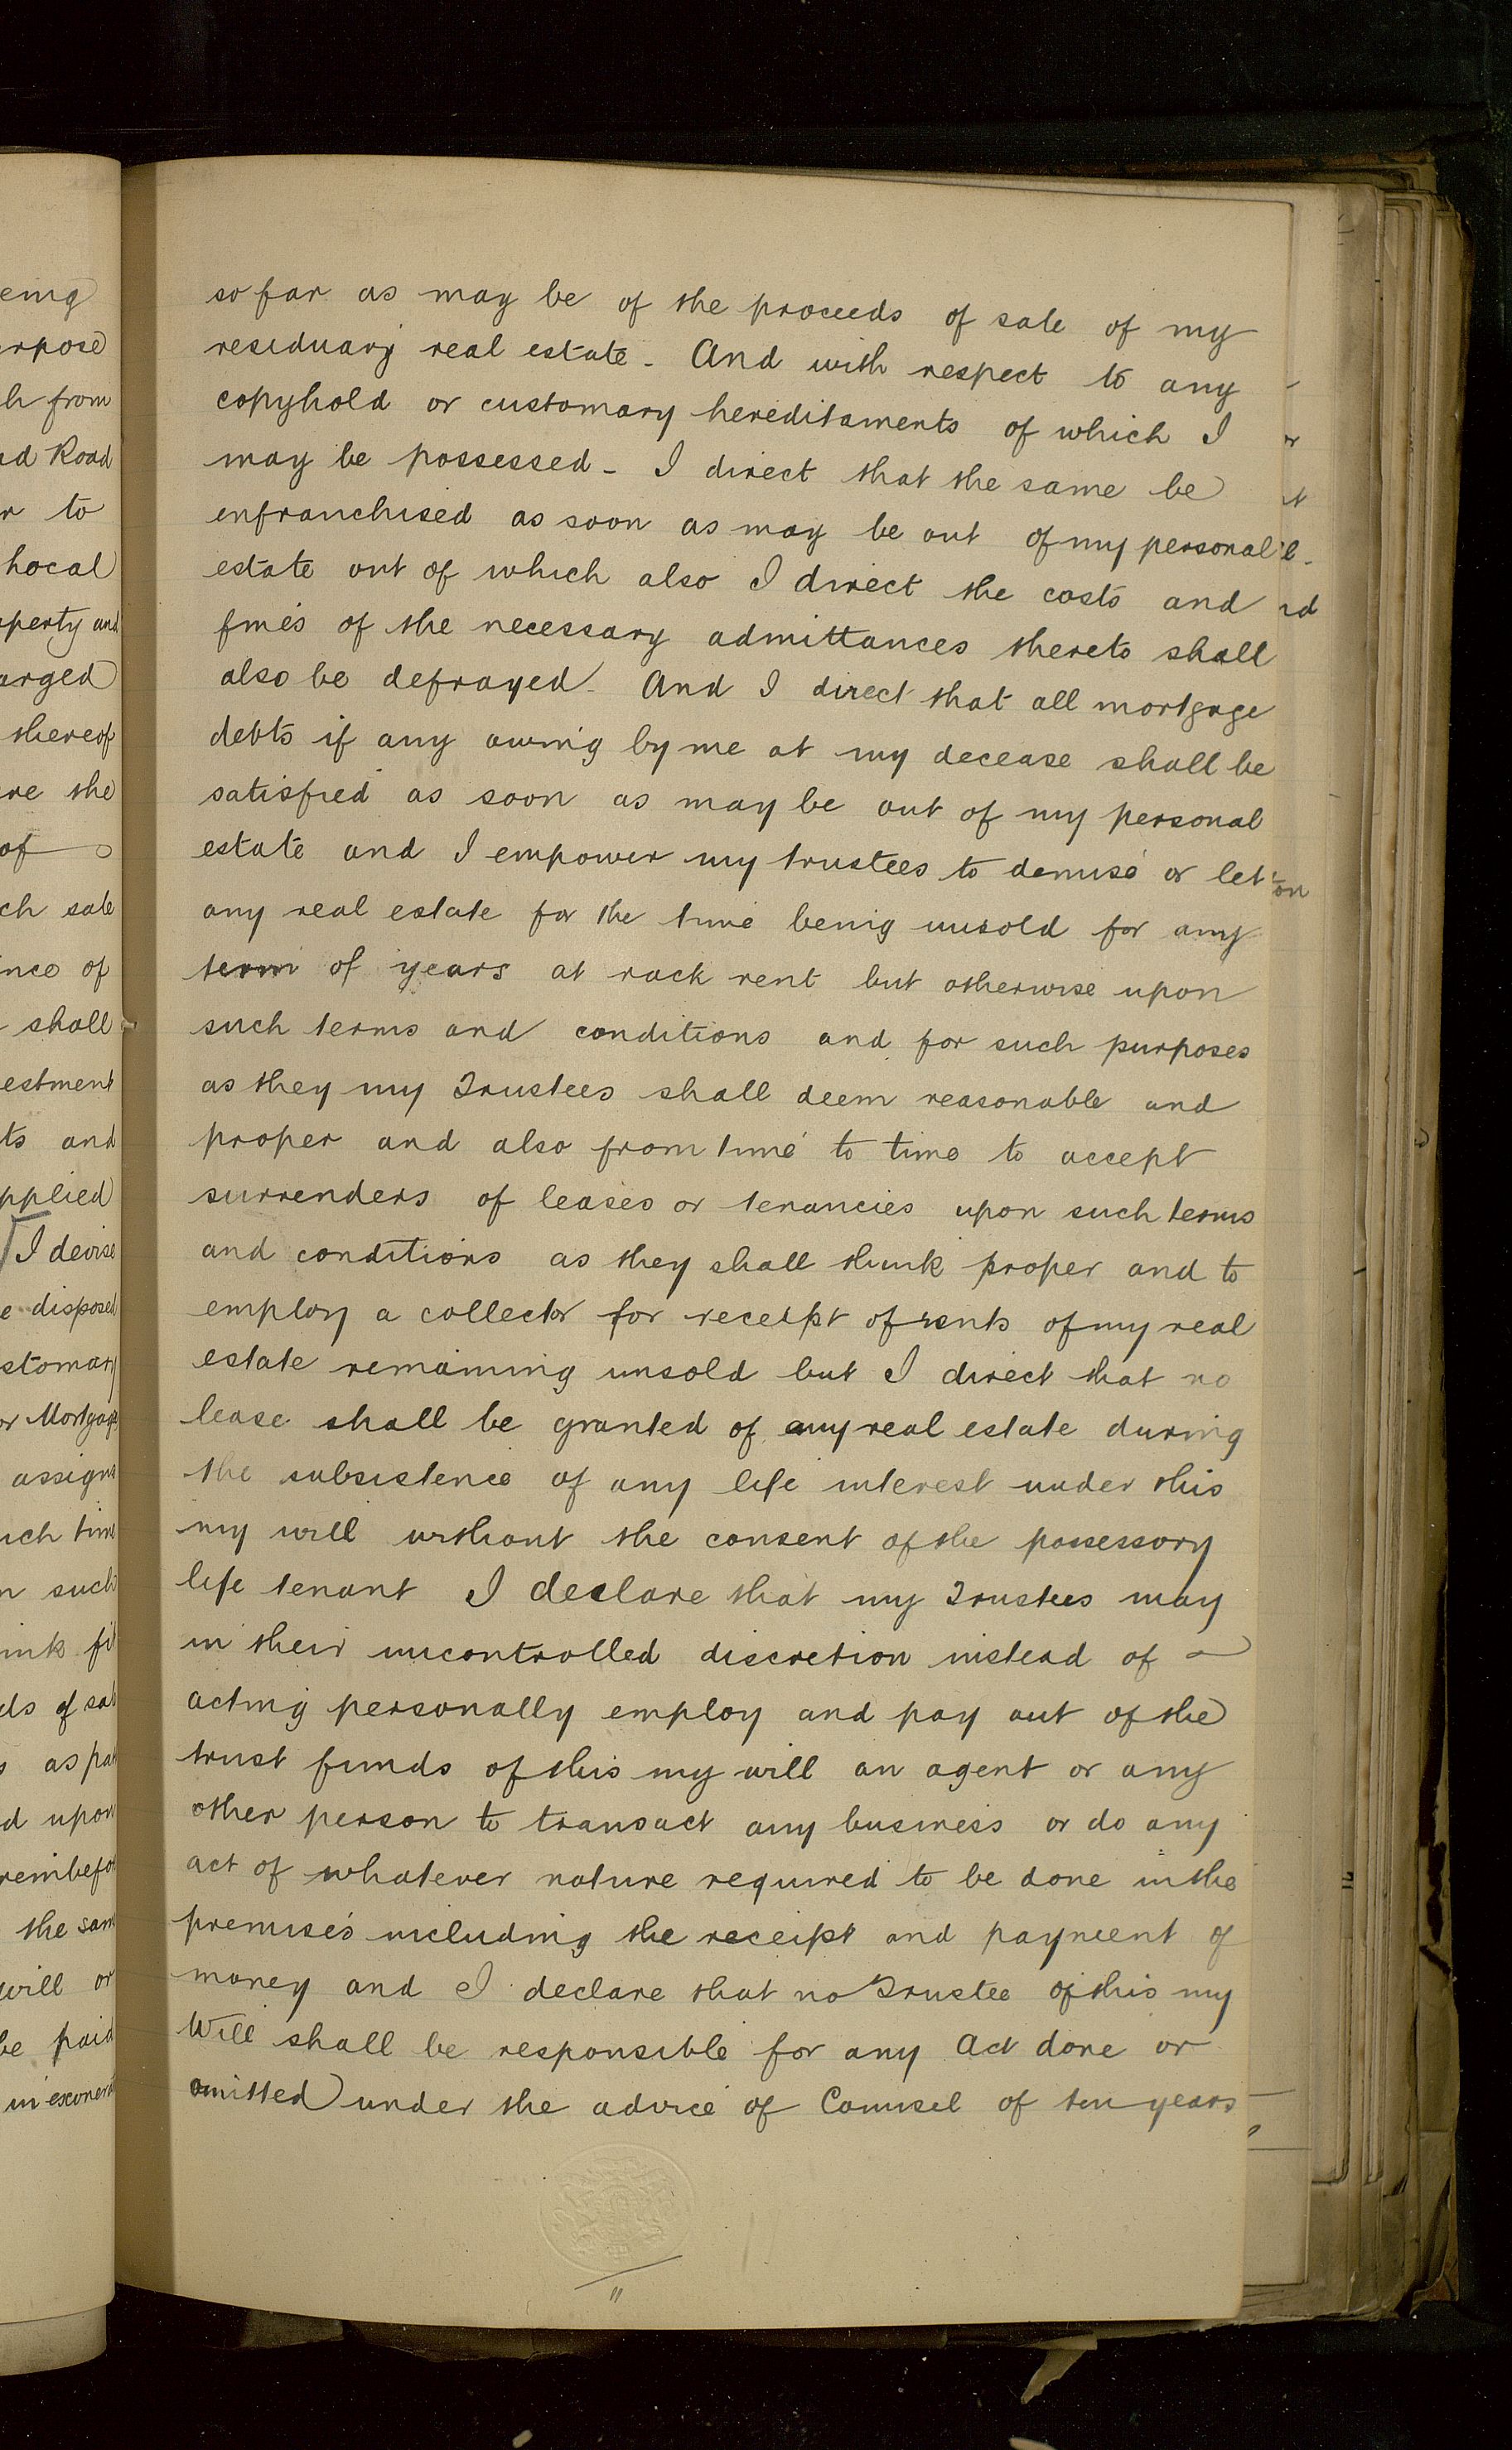 so far as may be of the proceeds of sale of my
residuary real estate - And with respect to any
copyhold or customary hereditaments of which I
may be possessed - I direct that the same be
enfranchised as soon as may be out of my personal
estate out of which also I direct the costs and
fines of the necessary admittances thereto shall
also be defrayed - And I direct that all mortgage
debts if any owing by me at my decease shall be
satisfied as soon as may be out of my personal
estate and I empower my trustees to demise or let
any real estate for the time being unsold for any
term of years at rack rent but otherwise upon
such terms and conditions and for such purposes
as they my Trustees shall deem reasonable and
proper and also from time to time to accept
surrenders of leases or tenancies upon such terms
and conditions as they shall think proper and to
employ a collector for receipt of rents of my real
estate remaining unsold but I direct that no
lease shall be granted of any real estate during
the subsistence of any life interest under this
my will without the consent of the possessory
life tenant I declare that my Trustees may
in their uncontrolled discretion instead of
acting personally employ and pay out of the
trust funds of this my will an agent or any
other person to transact any business or do any
act of whatever nature required to be done in the
premises including the receipt and payment of
money and I declare that no Trustee of this my
Will shall be responsible for any Act done or
omitted under the advice of Counsel of ten years
"
eing
rpose
h from
d Road
r to
Local
perty and
arged
thereof
re the
of
ch sale
nce of
shall
estment
ts and
pplied
I devise
e disposed
stomary
or Mortgage
assigns
uch time
n such
ink fit
ds of sale
as par
d upon
reinbefor
the same
will or
be paid
in exonera